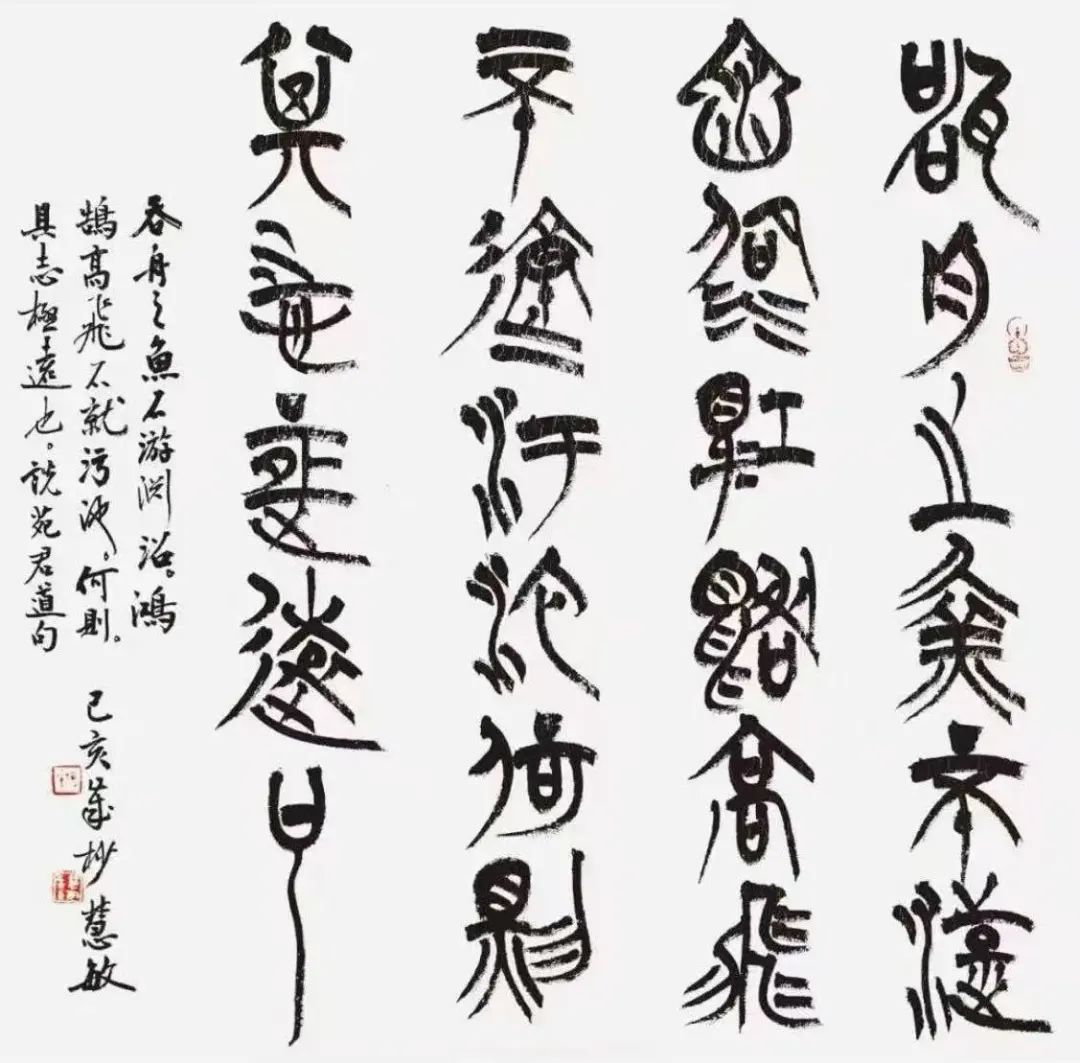 吞舟之魚不游
淵沿鴻鵠高飛
不就汙池何則
其志極遠也
吞舟之魚不游渊沿。鴻
鵠高飛不就污池。何則。
其志極遠也。說苑君道句
己亥歲杪慧敏